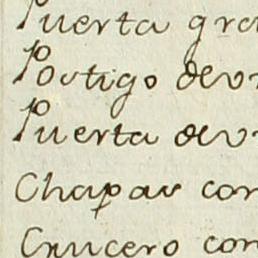 Puerta gra
Postigo de v
Puerta de v
Chapas cor
Crucero con